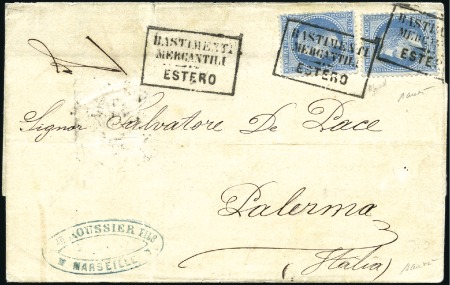 BASTIMENTI
MERCANTILI
ESTERO
BASTIMENTI
MERCANTILI
ESTERO
MERCANTILI
ESTERO
Signor Salvatore De Pace
Palermo
(Italia)
ROUSSIER FILS
MARSEILLE